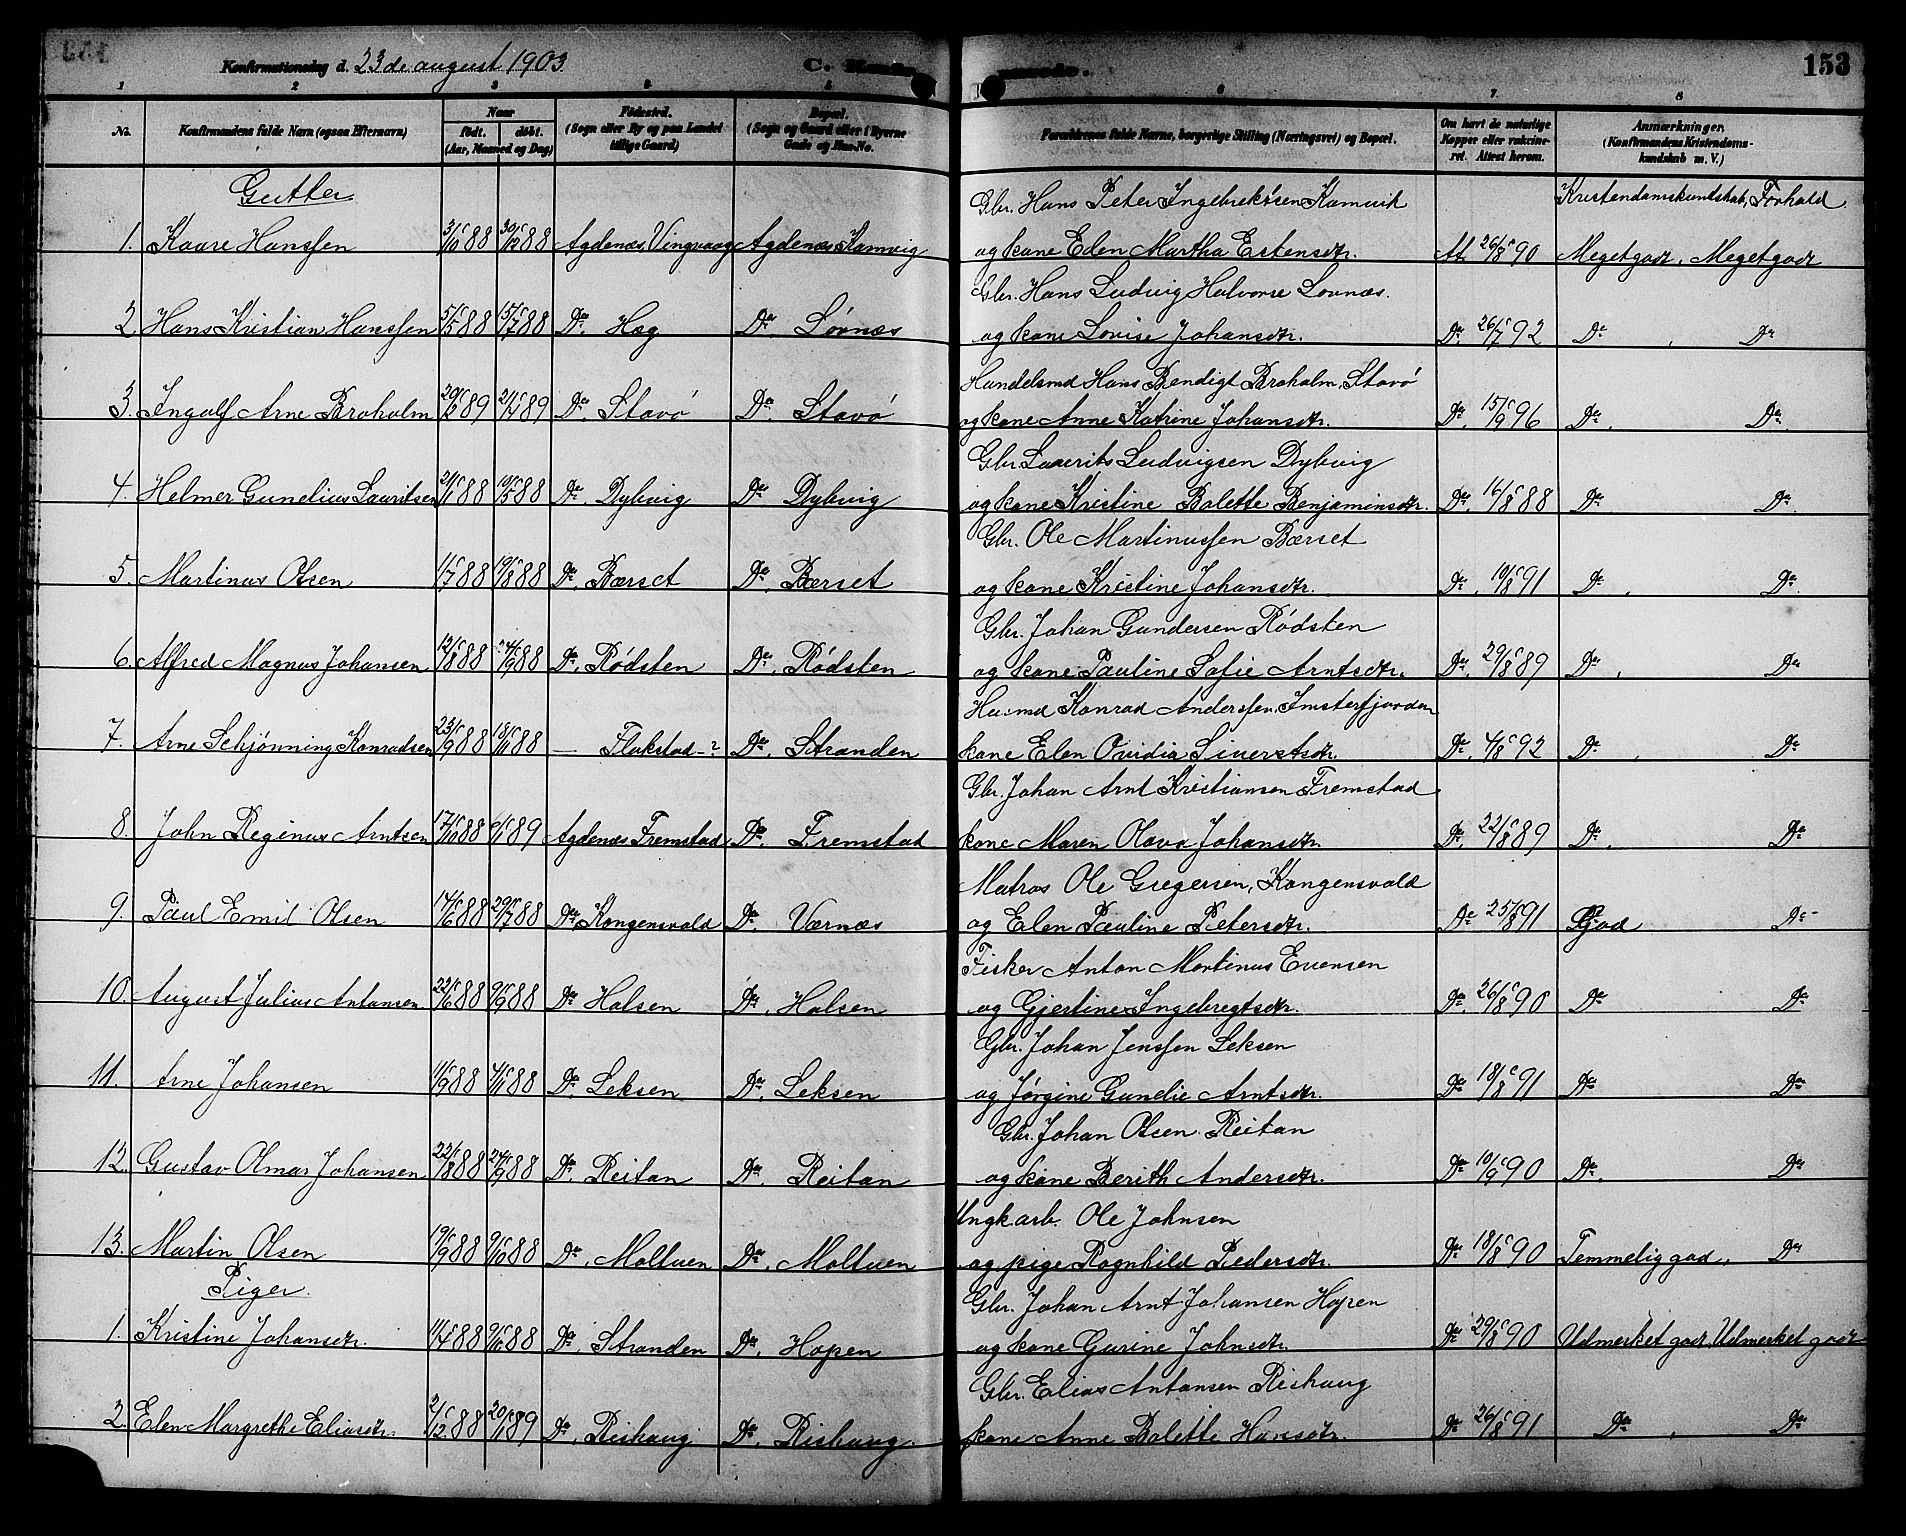 Konfirmationsdag d. 23de august 1903.
153
1 2 3 4 5 6 7 8
No. Konfirmandens fulde Navn (ogsaa Efternavn) Naar født. døbt. (Aar, Maaned og Dag) Fødested. (Sogn eller By og paa Landet tillige Gaard) Bopæl. (Sogn og Gaard eller i Byerne Gade og Hus-No. Forældrenes fulde Navne, borgerlige Stilling (Næringsvei) og Bopæl. Om havt de naturlige Kopper eller vaksineret. Attest herom. Anmærkninger. (Konfirmandens Kristendomskundskab m. V.)
Gutter
Gbr. Hans Peter Ingebrektsen Kamvik Kristendomskundskab, Forhold
1. Kaare Hanssen 3/10 88 30/12 88 Agdenæs Vingvaag Agdenæs Kamvig og kone Elen Martha Estensdtr. At. 26/8 90 Megetgodt, Megetgodt
Gbr. Hans Ludvig Halvorsen Lovnæs.
2. Hans Kristian Hanssen 5/5 88 15/7 88 Do. Hæg Do. Løvnæs og kone Lovise Johansdtr. Do. 26/7 92 Do , Do
Handelsmd Hans Bendigt Broholm, Stavø
3. Ingolf Arne Broholm 20/2 89 21/4 89 Do. Stavø Do. Stavø og kone Anne Katrine Johansdtr. Do. 15/9 96 Do. Do.
Gbr. Laurits Ludvigsen Dybvig
4. Helmer Gunelius Lauritsen 21/1 88 10/5 88 Do. Dybvig Do. Dybvig og kone Kristine Balette Benjaminsdtr. Do. 16/8 88 Do. Do.
Gbr. Ole Martinussen Bærset
5. Martinus Olsen 1/7 88 19/8 88 Do. Bærset Do. Bærset og kone Kristine Johansdtr. Do. 10/8 91 Do , Do.
Gbr. Johan Gundersen Rødsten
6. Alfred Magnus Johansen 12/8 88 24/9 88 Do. Rødsten Do. Rødsten og kone Pauline Sofie Arntsdtr. Do. 29/8 89 Do , Do
Husmd Konrad Anderssen, Imsterfjorden
7. Arne Schjønning Konradsen 23/9 88 18/11 88 — Flakstad -? Do. Stranden kone Elen Ovidia Sivertsdtr. Do. 4/8 92 Do , Do
Gbr. Johan Arnt Kristiansen Fremstad
8. John Reginus Arntsen 17/10 88 6/1 89 Agdenæs Fremstad Do. Fremstad kone Maren Olava Johansdtr. Do. 22/8 89 Do. Do
Matros Ole Gregersen, Kongensvold
9. Paul Emil Olsen 14/6 88 29/7 88 Do Kongensvold Do. Værnæs og Elen Pauline Petersdtr. Do 25/8 91 God Do
Fisker Anton Martinus Evensen
10. August Julius Antonsen 22/6 88 9/9 88 Do Halsen Do. Halsen og Gjertine Ingebregtsdtr. Do. 26/8 90 Do Do
Gbr. Johan Jenssen Leksen
11. Arne Johansen 11/9 88 4/11 88 Do. Leksen Do. Leksen og Jørgine Gunelie Arntsdtr. Do 18/8 91 Do Do
Gbr. Johan Olsen Reitan
12. Gustav Olmar Johansen 22/8 88 24/9 88 Do. Reitan Do. Reitan og kone Berith Andersdtr. Do 10/9 90 Do. Do
Ungkarb. Ole Johnsen
13. Martin Olsen 19/9 88 9/10 88 Do. Moltuen Do. Moltuen og pige Ragnhild Pedersdtr. Do 18/8 90 Temmelig god, Do
Piger.
Gbr. Johan Arnt Johansen Hopen
1. Kristine Johansdtr. 11/4 88 Do. Stranden Do. Hopen og kone Gurine Johnsdtr. Do 29/8 90 Udmerket god, Udmerket godt
Gbr. Elias Antonsen Rishaug
2. Elen Margrethe Eliasdtr. 2/12 88 20/1 89 Do. Rishaug Do. Rishaug. kone Anne Balette Hansdtr. Do. 26/8 91 Do , Do